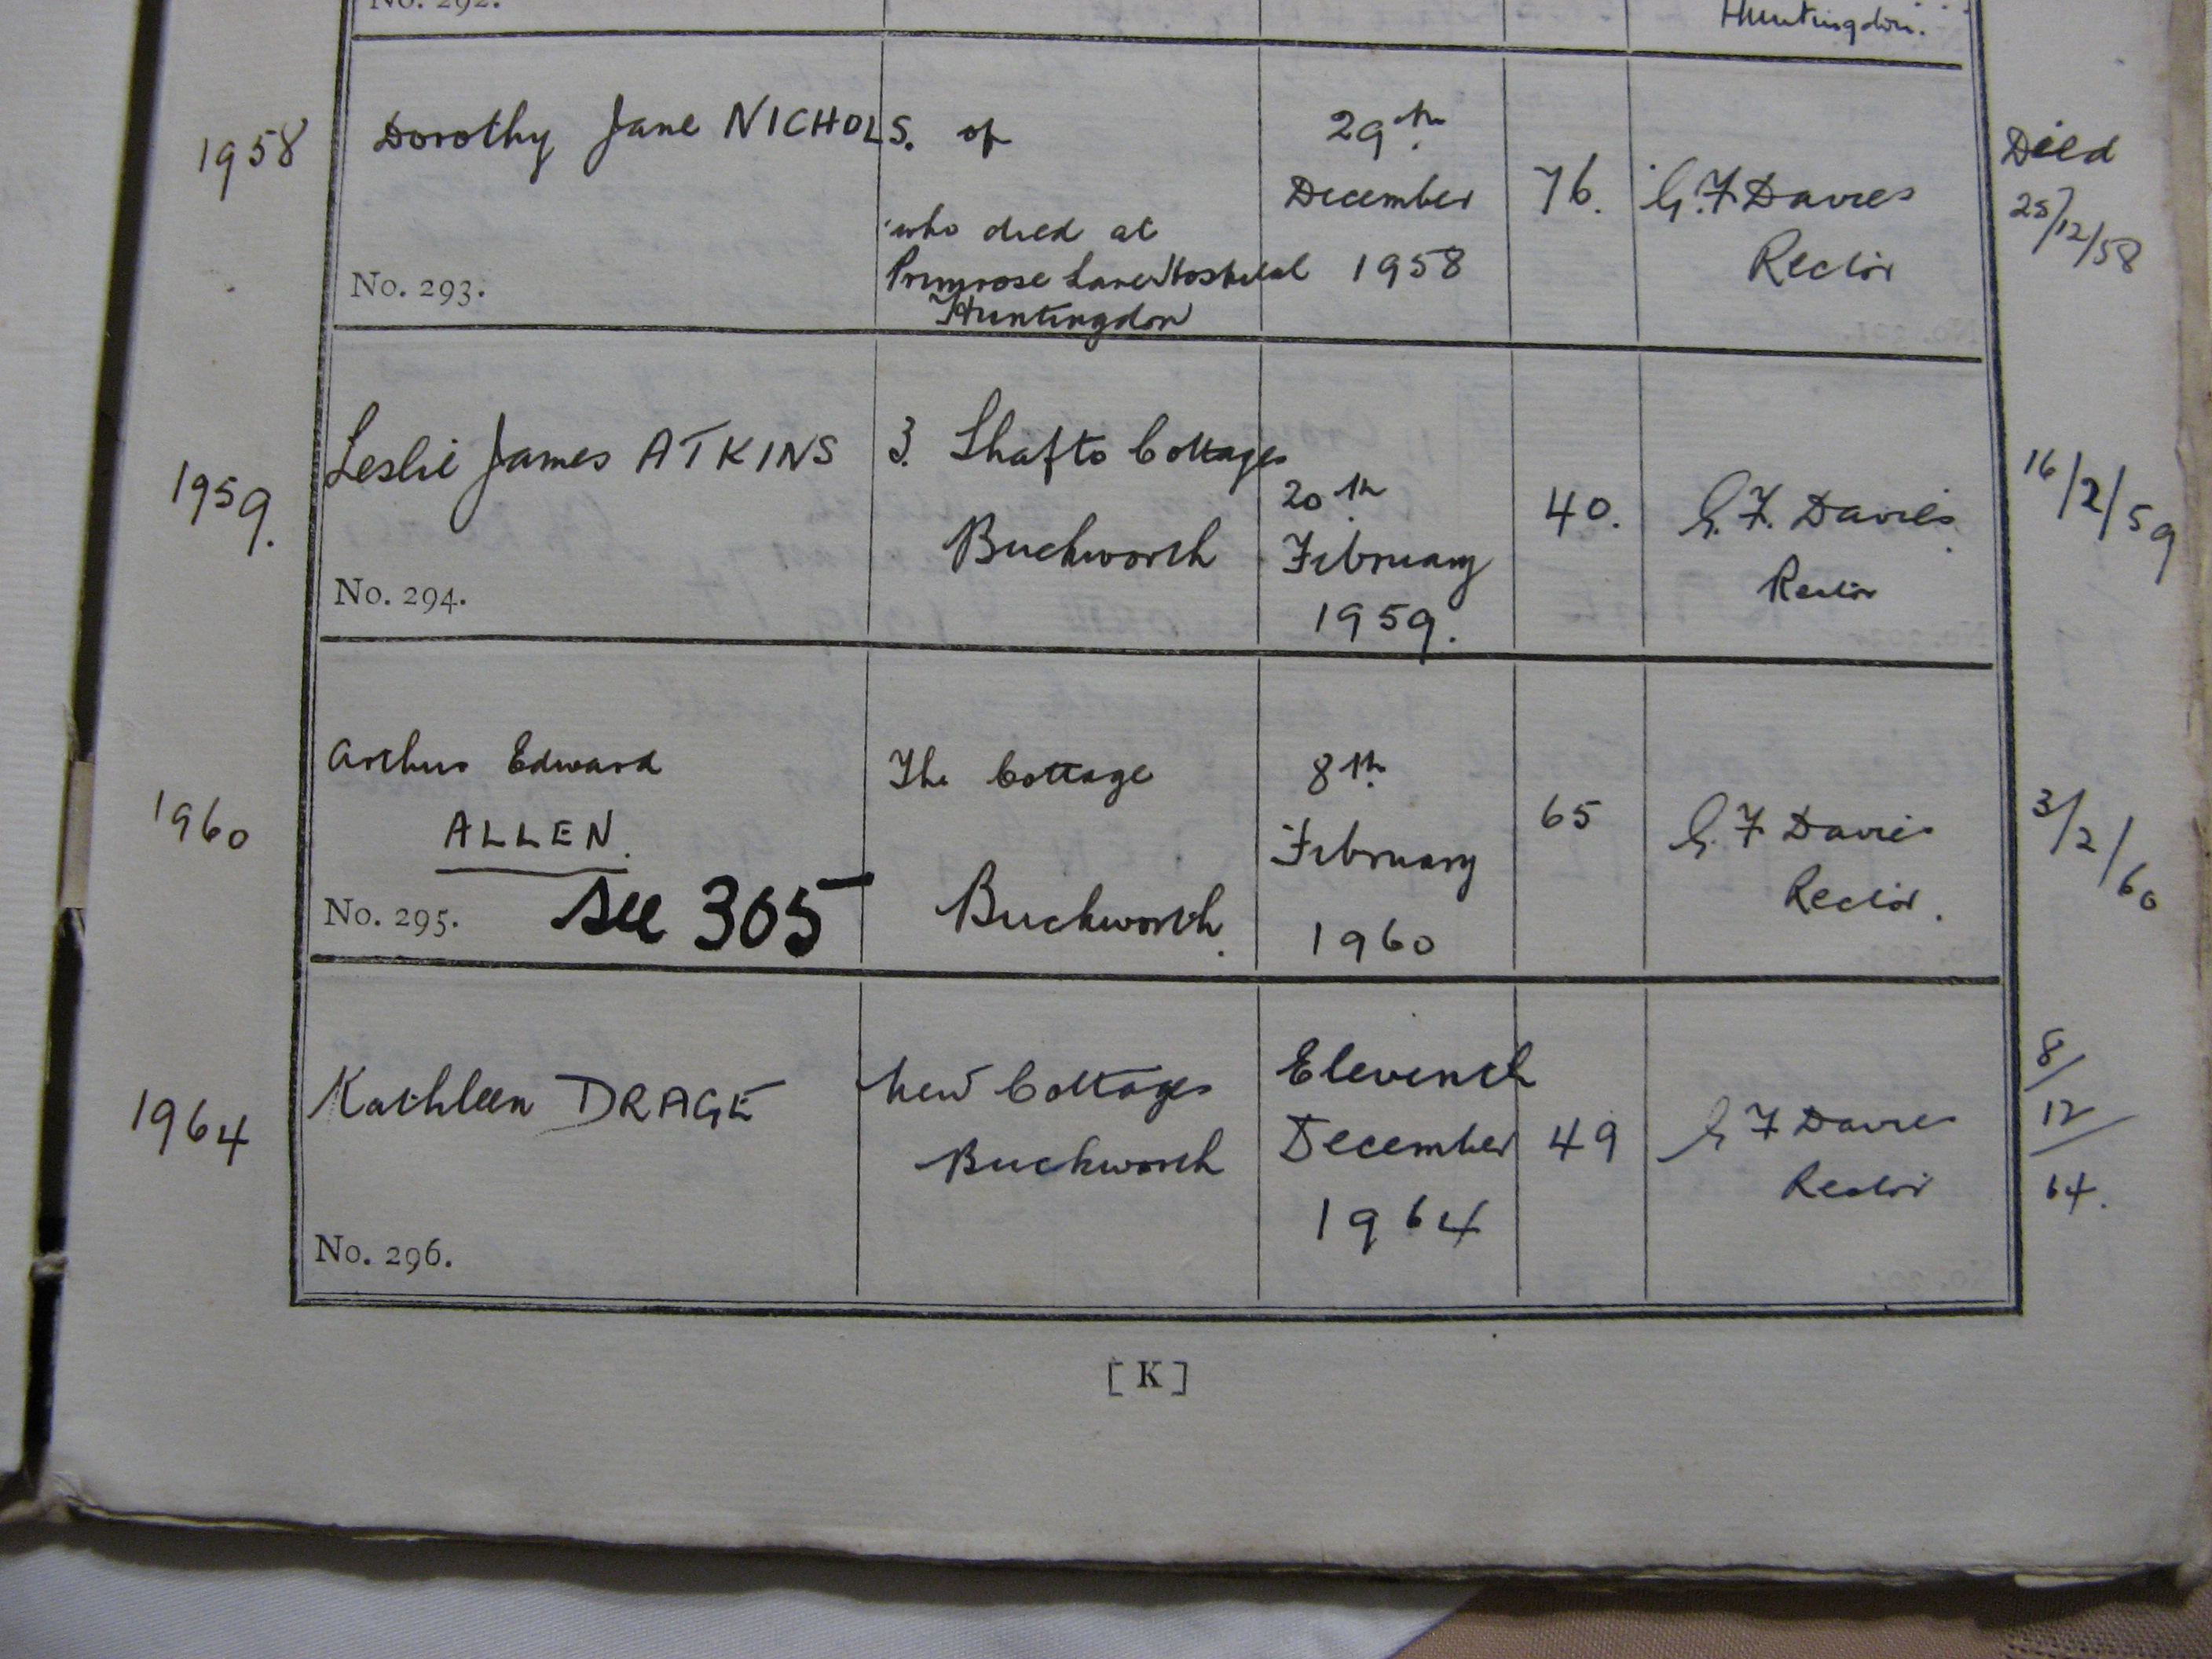 No. 292.
Huntingdon.
1958
Dorothy Jane NICHOLS. of
who died at
Primrose Lane Hospital
Huntingdon
29th
December
1958
76.
G. F Davies
Rector
Died
25/12/58
No. 293.
1959.
Leslie James ATKINS
3. Shafto Cottages
Buckworth
20th
February
1959.
40.
G. F. Davies.
Rector
16/2/59
No. 294.
1960
Arthur Edward
ALLEN.
see 305
The Cottage
Buckworth.
8th
February
1960
65
G. F Davies
Rector.
3/2/60
No. 295.
1964
Kathleen DRAGE
New Cottages
Buckworth
Eleventh
December
1964
49
G F Davies
Rector
8/
12/
64.
No. 296.
[K]